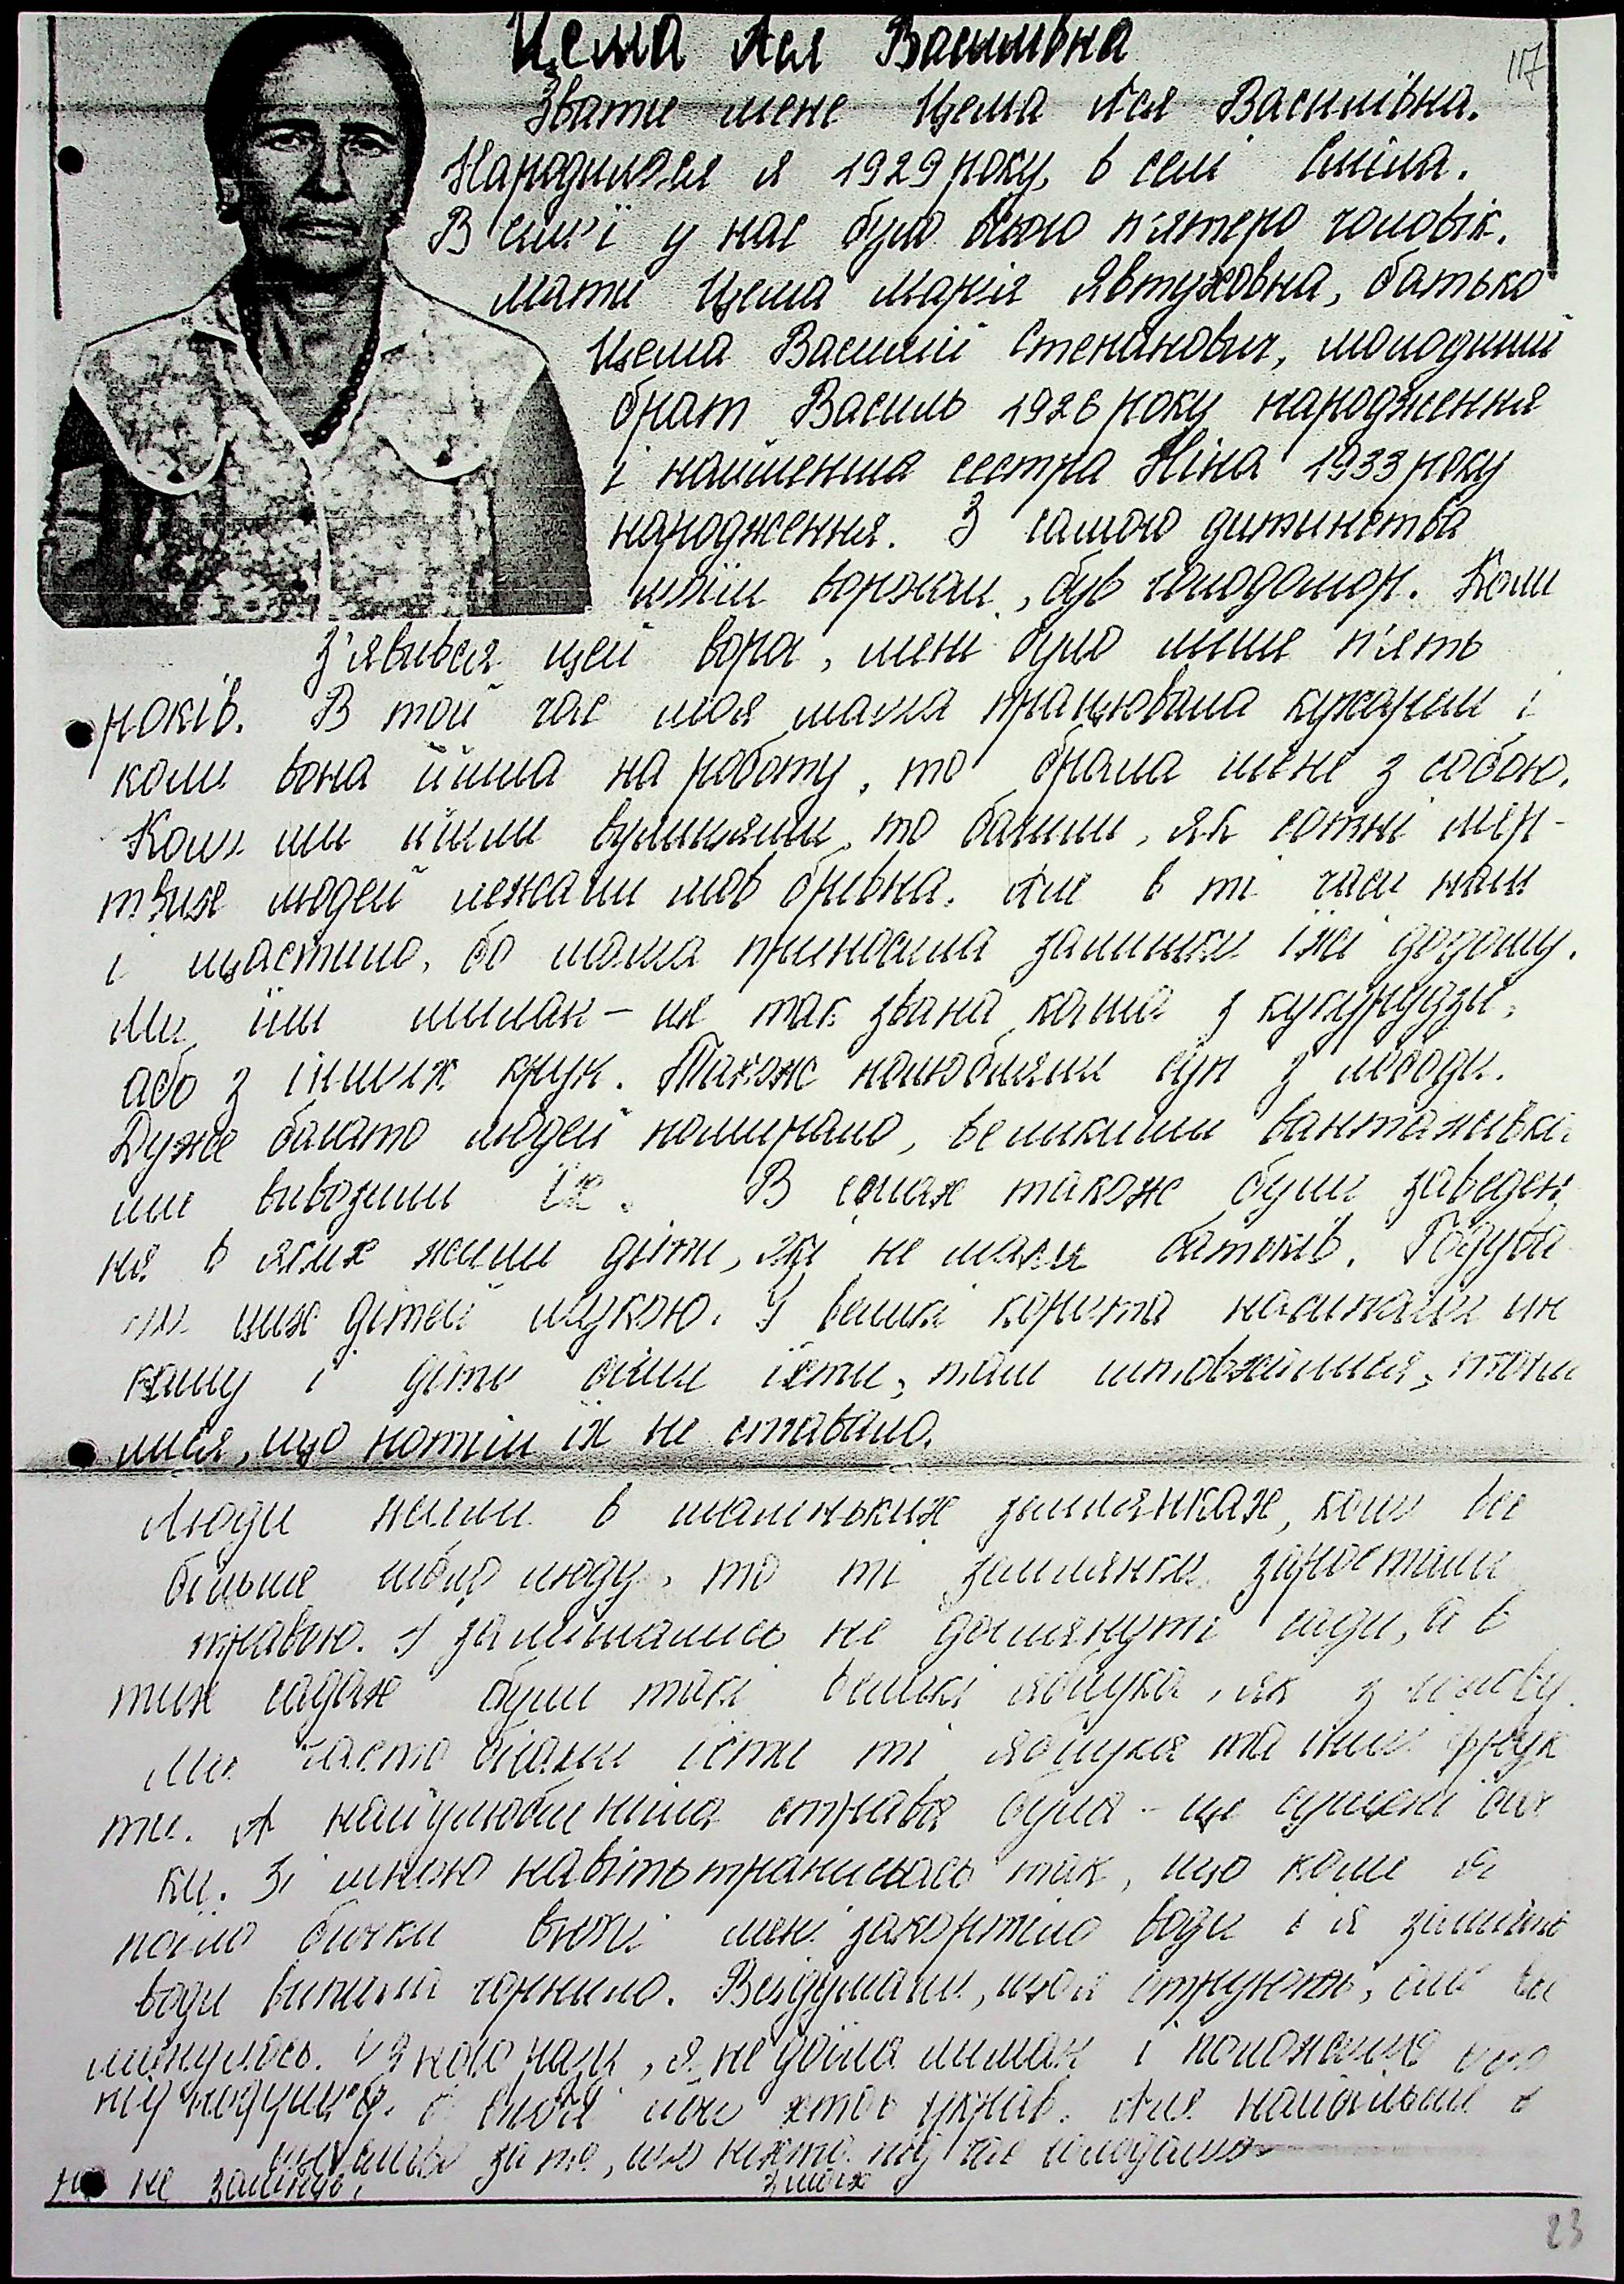 Цема Ася Василівна
117
Звати мене Цема Ася Василівна.
Народилася я 1929 року, в селі Сміла.
В сім'ї у нас було всього п'ятеро чоловік.
Мати Цема Марія Явтуховна, батько
Цема Василій Степанович, молодший
брат Василь 1926 року народження
і найменша сестра Ніна 1933 року
народження. З самого дитинства
моїм ворогом, був голодомор. Коли
з'явився цей ворог, мені було лише п'ять
років. В той час моя мама працювала кухарем і
коли вона йшла на роботу, то брала мене з собою.
Коли ми йшли вулицями, то бачили, як сотні мер-
твих людей лежали мов бревна. Але в ті часи нам
і щастило, бо мама приносила залишки їжі додому.
Ми їли лимак – це так звана каша з кукурудзи,
або з інших круп. Також полюбляли суп з лободи.
Дуже багато людей помирало, великими вантажівка
ми вивозили їх. В селах також були заведен
ня в яких жили діти, які не мали батьків. Годува
ли цих дітей мукою. У великі корита насипали цю
кашу і діти бігли їсти, там штовхалися,
лися, що потім їх не ставало.
Люди жили в маленьких землянках, коли все
більше мерло люду, то ті землянки заростали
травою. І залишались не доглянуті сади, а в
тих садах були такі великі яблука, як з голову.
Ми часто бігали їсти ті яблука та інші фрук
ти. А найулюбленіша страва була – це сушені бич
ки. Зі мною навіть трапилось так, що коли я
поїла бички вночі мені захортіло води і я замість
води випила чорнило. Всі думали, що я отруюсь, але все
минулось. Якось раз, я не доїла лимак і положила його
під подушку, а вночі його хтось украв. Але найбільше я
щаслива за те, що ніхто з моїх під час голодомо
ру не загинув.
23